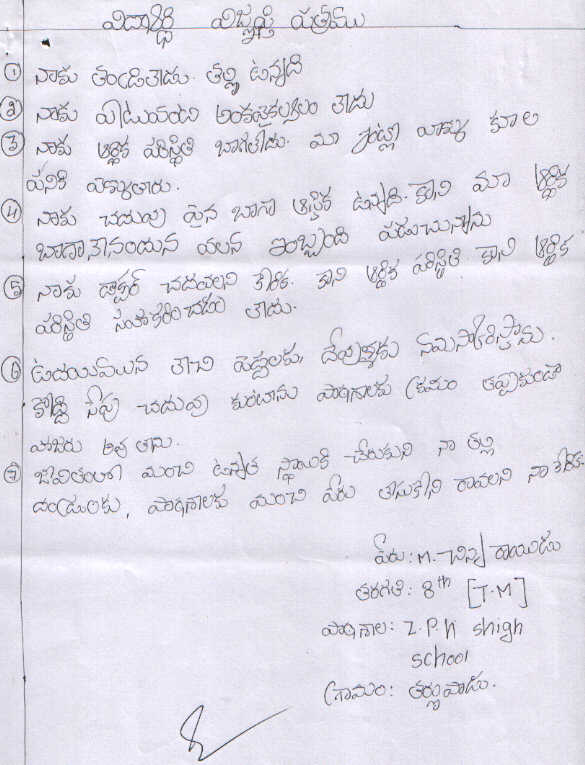 విద్యార్థి విజ్ఞప్తి పత్రము
① నాకు తండ్రిలేడు. తల్లి ఉన్నది
② నాకు ఏటువంటి అంగవైకల్యం లేదు
③ నాకు ఆర్థిక పరిస్థితి బాగలేదు. మా ఇంట్లో వాళ్ళు కూల
పనికి వెళ్ళుతారు.
④ నాకు చదువు పైన బాగా ఆసక్తి ఉన్నది. కాని మా ఆర్థిక
బాగాలేనందున వలన ఇబ్బంది పడుచున్నాను
⑤ నాకు డాక్టర్ చదవలని కోరిక. కాని ఆర్థిక పరిస్థితి కాని ఆర్థిక
పరిస్థితి సహకరించడు లేదు.
⑥ ఉదయమున లేచి పెద్దలకు, దేవుళ్ళకు నమస్కరిస్తాను.
కొద్ది సేపు చదువు కుంటాను పాఠశాలకు క్రమం తప్పకుండా
హాజరు అవుతాను.
⑦ జీవితంలో మంచి ఉన్నత స్థాయికి చేరుకుని నా తల్లి
దండ్రులకు, పాఠశాలకు మంచి పేరు తీసుకోని రావలని నా కోరిక.
పేరు: M. చిన్న రాయుడు
తరగతి: 8th [T.M]
పాఠశాల: Z.P.H shigh
school
గ్రామం: తర్లుపాడు.